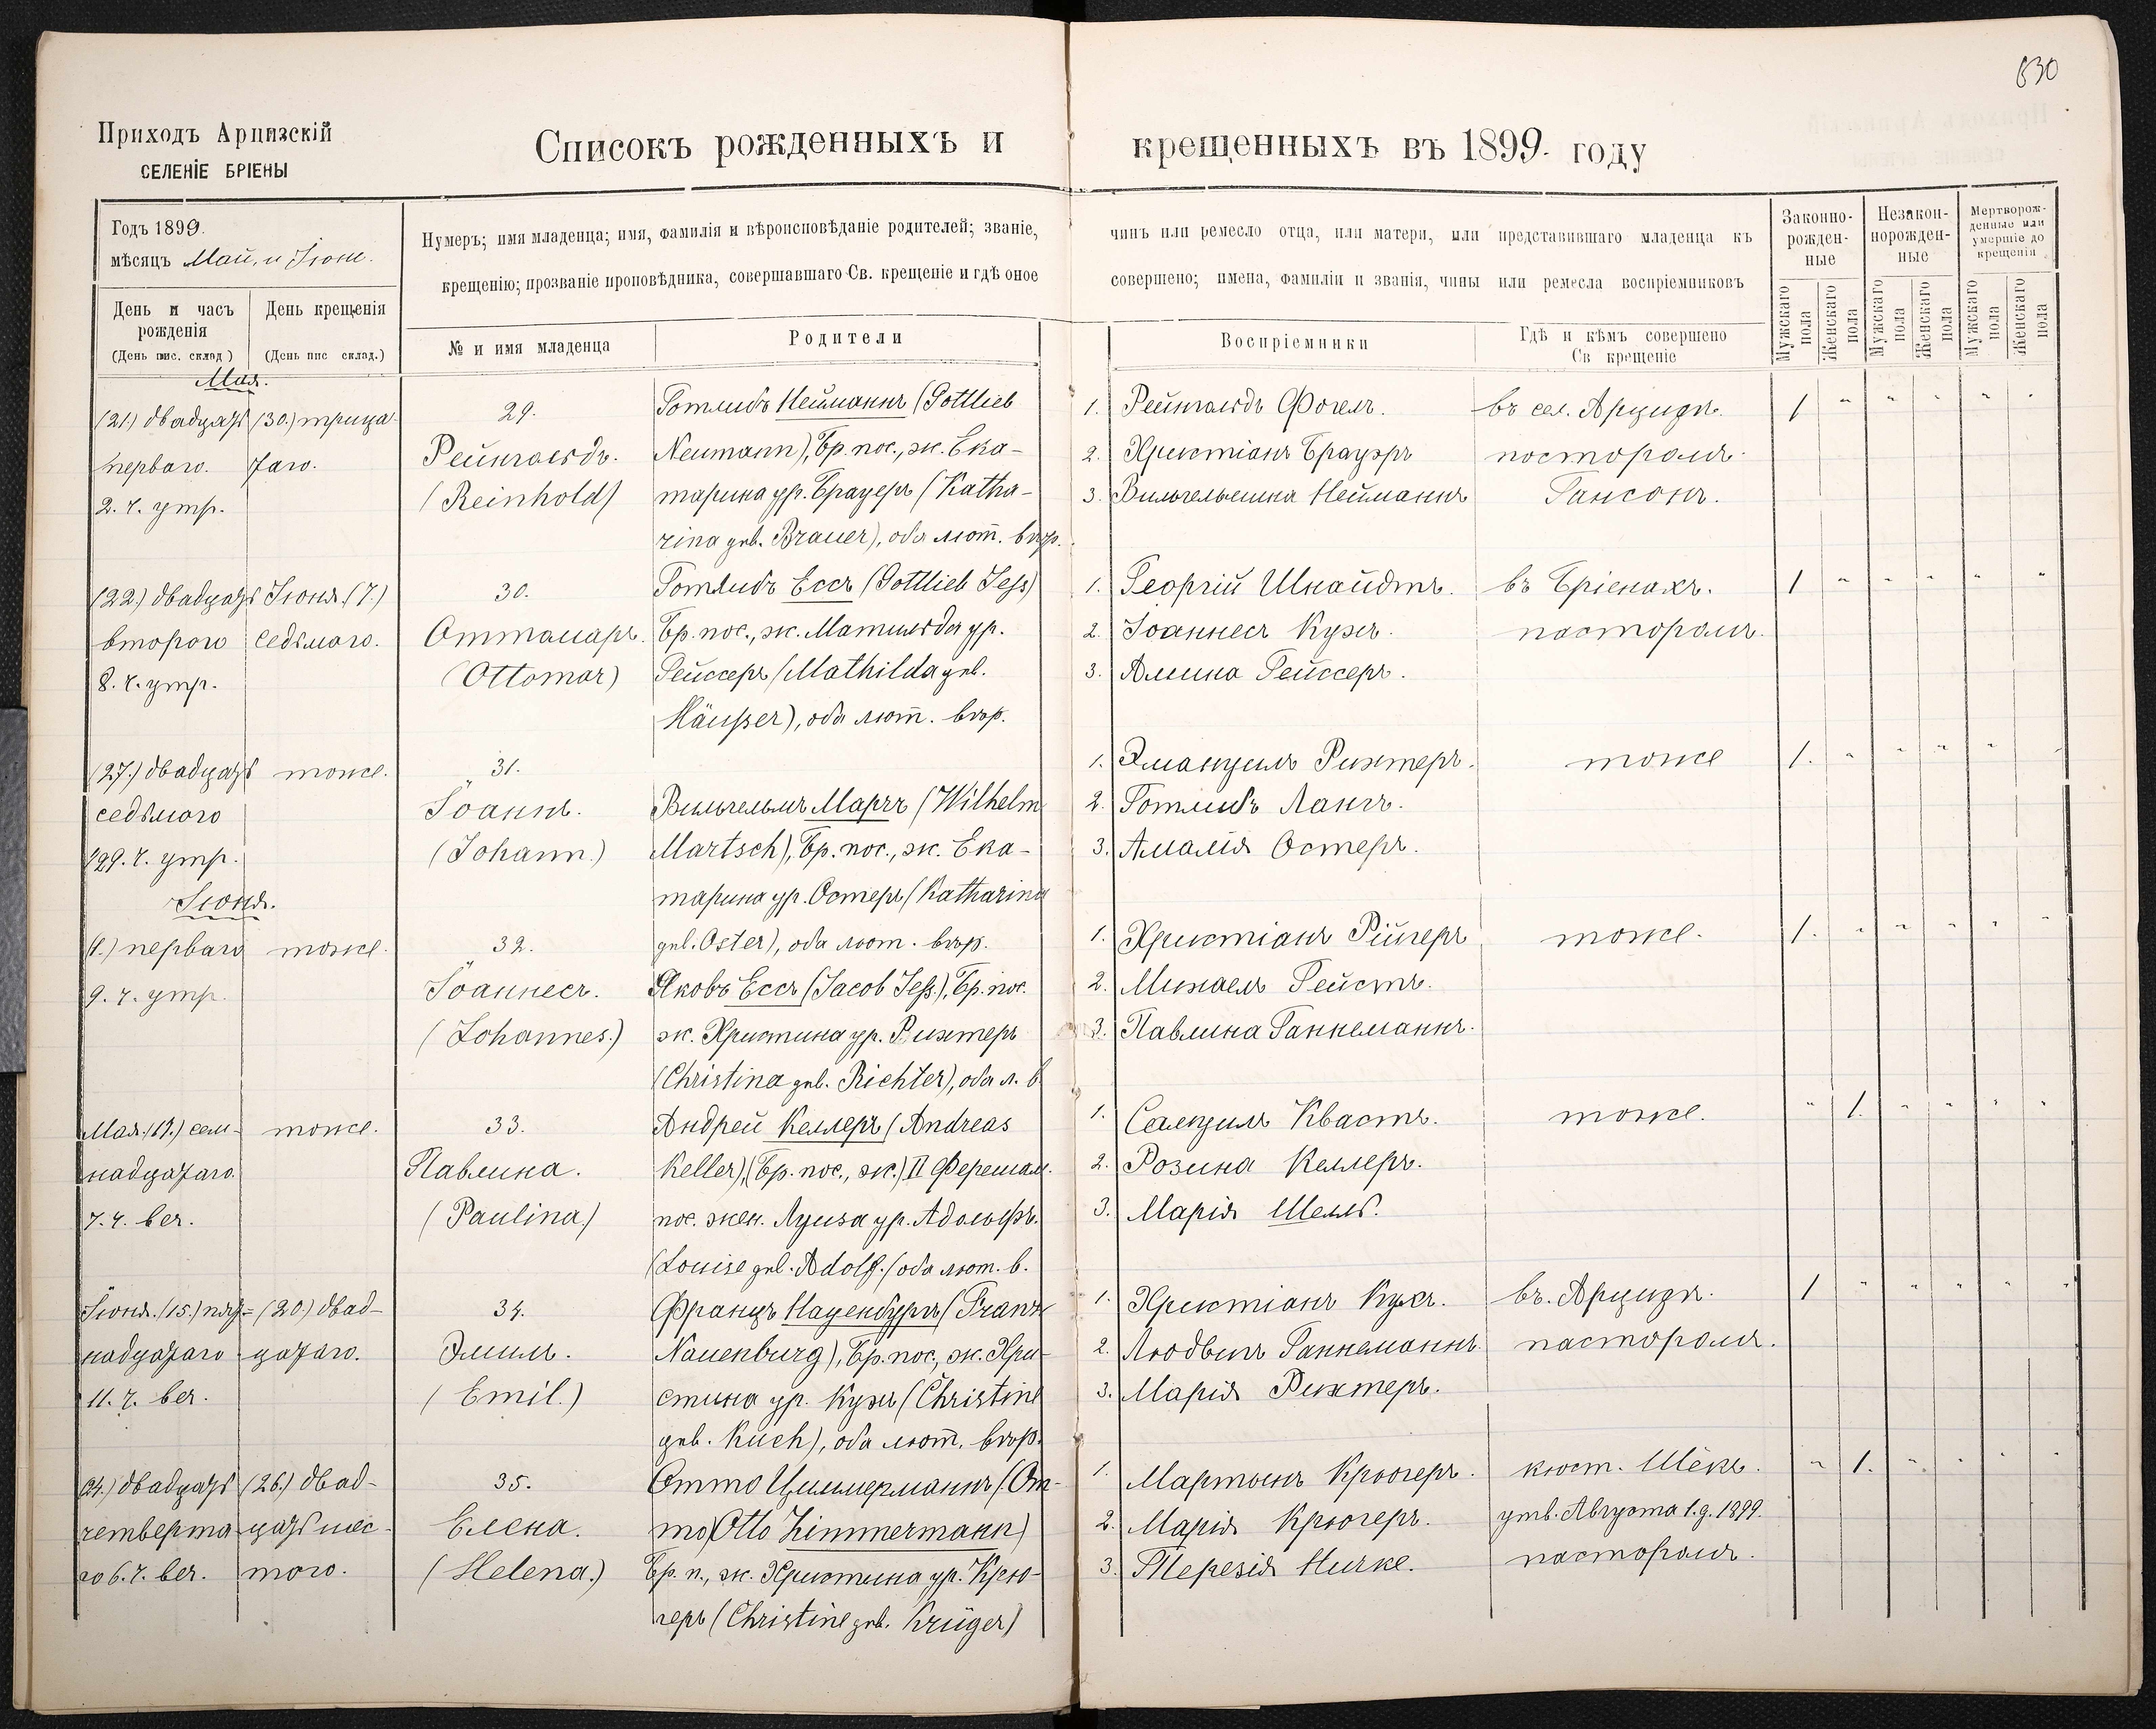 630
Приходъ Арцизскій
СЕЛЕНІЕ БРІЕНЫ
Списокъ рожденныхъ и крещенныхъ въ 1899. году
Годъ 1899.
мѣсяцъ Май, и Іюнь.
День и часъ рожденія
(День пис. склад)
День крещенія
(День пис склад.)
Нумеръ; имя младенца; имя, фамилія и вѣроисповѣданіе родителей; званіе, чинъ или ремесло отца, или матери, или представившаго младенца къ
крещенію; прозваніе проповѣдника, совершавшаго Св. крещеніе и гдѣ оное совершено; имена, фамиліи и званія, чины или ремесла воспріемниковъ
№ и имя младенца
Родители
Воспріемники
Гдѣ и кѣмъ совершено
Св крещеніе
Законно-
рожден-
ные
Незакон-
норожден-
ные
Мертворож-
денные или
умершіе до
крещенія
Мужскаго пола
Женскаго пола
Мужскаго пола
Женскаго пола
Мужскаго пола
Женскаго пола
Мая.
(21.) двадцать
перваго.
2. ч. утр.
(30.) трица-
таго.
29.
Рейнгольдъ.
(Reinhold)
Готлибъ Нейманнъ (Gottlieb
Neumann), Бр. пос., ж. Ека-
тарина ур. Брауеръ (Katha-
rina gnb. Brauer), оба лют. вѣр.
1. Рейнгольдъ Фогель.
2. Христіанъ Брауэръ
3. Вильгельмина Нейманнъ
въ сел. Арцизѣ.
постороmъ
Гансонъ.
1 " " " " "
(22.) двадцать
второго
8. ч. утр.
Іюня (7.)
седьмого.
30.
Оттомаръ.
(Ottomar)
Готлибъ Ессъ (Gottlieb Jeß)
Бр. пос., ж. Матильда ур.
Гейссеръ (Mathilda gnb.
Häußer), оба лют. вѣр.
1. Георгій Шнайдтъ.
2. Іоаннесъ Кухъ.
3. Алина Гейссеръ.
въ Бріенахъ.
пасторомъ.
1 " " " " "
(27.) двадцать
седьмого
9. ч. утр.
тоже.
31.
Іоаннъ.
(Johann.)
Вильгельмъ Марчъ (Wilhelm
Martsch), Бр. пос., ж. Ека-
тарина ур. Остеръ (Katharina
gnb. Oster), оба лют. вѣр.
1. Эмануилъ Рихтеръ.
2. Готлибъ Лангъ.
3. Амалія Остеръ.
тоже
1. " " " " "
Іюня.
(1.) перваго
9. ч. утр.
тоже.
32.
Іоаннесъ.
(Johannes.)
Яковъ Ессъ (Jacob Jeß.), Бр. пос.
ж. Христина ур. Рихтеръ
(Christina gnb. Richter), оба л. в.
1. Христіанъ Рійгеръ
2. Михаелъ Гейстъ.
3. Павлина Ганнеманнъ.
тоже.
1. " " " " "
Мая (17.) сем-
надцатаго.
7. ч. веч.
тоже.
33.
Павлина.
(Paulina.)
Андрей Келлеръ (Andreas
Keller), (Бр. пос., ж.) II Ферешам.
пос. жен. Луиза ур. Адольфъ.
(Louise gnb. Adolf.) оба лют. в.
1. Самуилъ Квастъ.
2. Розина Келлеръ.
3. Марія Шелль.
тоже.
" 1. " " " "
Іюня (15.) пят-
надцатаго
11. ч. веч.
(20) двад-
цатаго.
34.
Эмилъ.
(Emil.)
Францъ Науенбургъ (Franz
Nauenburg), Бр. пос., ж. Хри-
стина ур. Кухъ (Christine
gnb. Kuch), оба лют. вѣр.
1. Христіанъ Кухъ.
2. Людвигъ Ганнеманнъ.
3. Марія Рихтеръ.
въ Арцизѣ.
пасторомъ.
1 " " " " "
(24.) двадцать
четверта-
го 6. ч. веч.
(26.) двад-
цать шес-
того.
35.
Елена.
(Helena.)
Отто Циммерманнъ (От-
то) (Otto Zimmermann)
Бр. п., ж. Христина ур. Крю-
геръ (Christine gnb. Krüger)
1. Мартынъ Крюгеръ.
2. Марія Крюгеръ.
3. Терезія Ничке.
кюст. Шёкъ.
утв. Августа 1. д. 1899.
пасторомъ.
" 1. " " " "